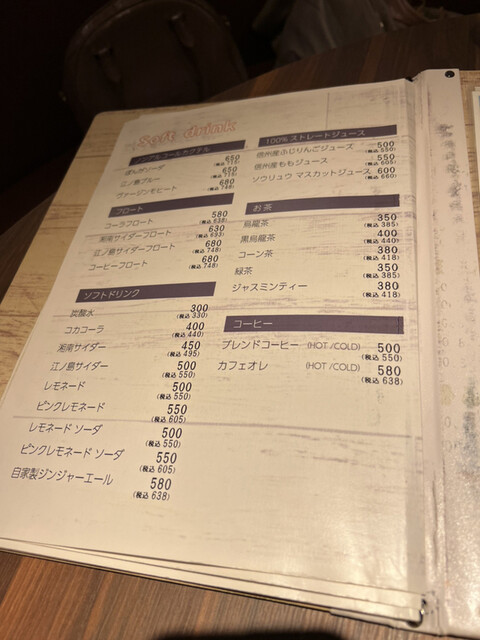 Soft drink
ノンアルコールカクテル
650
江ノ島ブルー 650
ヴァージンモヒート 680
(税込 748)
フロート
コーラフロート 580
(税込 638)
湘南サイダーフロート 630
(税込 693)
江ノ島サイダーフロート 680
(税込 748)
コーヒーフロート 680
(税込 748)
ソフトドリンク
炭酸水 300
(税込 330)
コカコーラ 400
(税込 440)
湘南サイダー 450
(税込 495)
江ノ島サイダー 500
(税込 550)
レモネード 500
(税込 550)
ピンクレモネード 550
(税込 605)
レモネード ソーダ 500
(税込 550)
ピンクレモネード ソーダ 550
(税込 605)
自家製ジンジャーエール 580
(税込 638)
100%ストレートジュース
信州産ふじりんごジュース 500
(税込 550)
信州産ももジュース 550
(税込 605)
ソウリュウ マスカットジュース 600
(税込 660)
お茶
烏龍茶 350
(税込 385)
黒烏龍茶 400
(税込 440)
コーン茶 380
(税込 418)
緑茶 350
(税込 385)
ジャスミンティー 380
(税込 418)
コーヒー
ブレンドコーヒー (HOT/COLD) 500
(税込 550)
カフェオレ (HOT/COLD) 580
(税込 638)